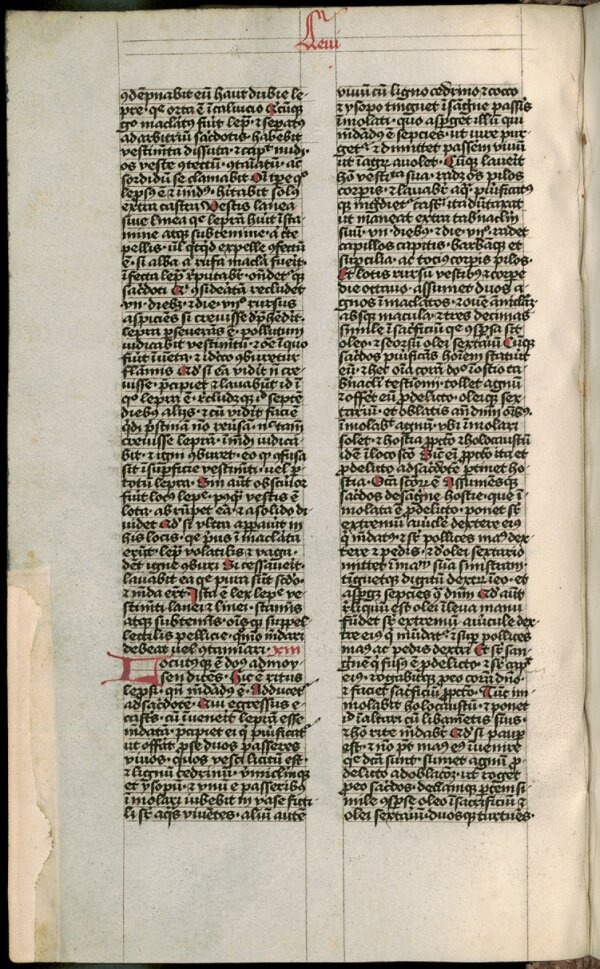 Leui
ꝯdēpnabit eū haut dubie le
pre · q̄ orta ē ī caluicio Quicūq̄
g° maclat° fūit lepͣ · ⁊ sepat°
ad arbitriū sacdotis · habebit
vestimta dissuta · ⁊ capͭ nudū ·
os veste ꝯtectū · ꝯtaīatū · ac
sordidū se clamabit · Oī tpe q°
lepsꝰ ē ⁊ īmūdꝰ · hītabit solꝰ
extra castra Vestis lanea
siue linea que leprā huīt ī sta
mine atq̄ subtemine · a cͭte
pellis · ul̄ qͥtqͥd ex pelle ꝯfectū
ē · si alba a rufa macla fūeit ·
īfecta lepͣ reputabͭ · ondetͬ q̄
sacdoti Qͥ ꝯsideatā recludet
vii · diebꝫ · ⁊ die · viiͦ · rursus
aspiciēs si creuisse dephēdit ·
lepra pseueras ē · pollutum
iudicabit vestimtū · ⁊ oē ī quo
fūit īuēta · ⁊ idcͦo ꝯburetur
flāmis Qͦd si eā vidīt n̄ cre
uisse · pcipiet ⁊ lauabūt id ī
q° lepra ē · recludetq̄ id septē
diebꝫ alijs · ⁊ cū vidīt faciē
qͥdē pstinā nō reūsā · nͨ tamē
creuisse leprā · īmūdū iudica
bit · ⁊ igni ꝯburet · eo qͦ īfusa
sit ī supficie vestimti · uel p
totū lepra Sin aūt obscurior
fūit locꝰ lepͤ · poqͣ vestis ē
lota · abrūpet eā · ⁊ a solido di
uidet Qͦd si vltͣ apparūit in
his locis · qͥ pͥus īmaclata
erāt · lepͣ volatilis ⁊ vaga ·
det igne ꝯburi Si cessauerit ·
lauabit ea que pura sūt scdo ·
⁊ mūda erūt Ista ē lex lepͤ ve
stimti lanei ⁊ linei · stamīs
atq̄ subtemīs · oīsq̄ suppel
lectilis pellicie · qͦmō mūdari
debeat uel ꝯtamīari · xiiii
Locutusq̄ ē dn̄s ad moy
sen dicēs · hic ē ritus
lepsi · qn̄ mūdādꝰ ē · Adducetͬ
ad sacdotē · Qui egressus e
castͥs · cū īuenīt leprā esse
mūdatā · pcipiet ei qͥ purificatͬ
ut offāt p se duos passeres
viuos · quos vesci licitū est ·
⁊ lignū cedrinū · v̄miclūq̄
et ysopū · ⁊ vnū e passeribꝫ
īmolari iubebit in vase ficti
li sͬ aq̄s viuētes · aliū autē
viuū cū ligno cedrino ⁊ cocco
⁊ ysopo tinguet ī sāgne passis
īmolati · quo aspget illū qui
mūdādꝰ ē sepcies · ut iure pur
getͬ · ⁊ dimittet passem viuū
ut ī agrū auolet · Cūq̄ lauerit
hō vestͣta sua · radet oēs pilos
corpis · ⁊ lauabͭ aqͣ · purificatꝰ
q̄ īgͥdietͬ castͣ · ita dūtaxat
ut maneat extra tabnaclm
suū · vii · diebꝫ · ⁊ die · viiͦ · radet
capillos capitis · barbāq̄ et
supcilia · ac totiꝰ corpis pilos ·
Et lotis rursū vestibꝫ ⁊ corpe
die octauo · assumet duos a
gnos īmaclatos · ⁊ ouē aniclā
absq̄ macula · ⁊ tres decimas
simile ī sacficiū que ꝯspsa sit
oleo · ⁊ seorsū olei sextariū Cūq̄
sacdos purificās hoīem statuīt
eū · ⁊ hec oīa corā dn̄o ī ostio ta
bnacli testīonij · tollet agnū
⁊ offet eū p delicto · oleiq̄ sex
tariū · et oblatis añ dn̄m oībꝫ ·
īmolabͭ agnū · vbi īmolari
solet · ⁊ hostia p pctͦo ⁊ holocaustū
id ē ī loco sco Sicͭ eī p pctͦo ita et
p delicto ad sacdotē ptinet ho
stia · Sca scoꝝ ē Assumēsq̄
sacdos de sāgne hostie · que ī
molata ē p delicto · ponet sͬ
extremū auricule dextere eiꝰ
qͥ mūdatͬ · ⁊ sͬ pollices manꝰ dex
tere ⁊ pedis · ⁊ d̄ olei sextario
mittet ī manū suā sinistram ·
tīguetq̄ digitū dextrū ī eo · et
aspget sepcies ɔ̄ dn̄m Qͦd aūt
reliquū est olei ī leua manu
fūdet sͬ extremū auricule dex
tre eiꝰ qͥ mūdatͬ · ⁊ sup pollices
manꝰ ac pedis dextri Et sͬ san
guinē qͥ fusꝰ ē p delicto · ⁊ sͬ capͭ
eiꝰ · ⁊ rogabitq̄ p eo corā dn̄o ·
⁊ faciet sacficiū p pctͦo · Tūc im
molabit holocaustū · ⁊ ponet
id ī altari cū libamētis suis ·
⁊ hō rite mūdabͭ Qͦd si paup
est · ⁊ nō pͭ manꝰ eiꝰ īuenire
que dcā sunt · sumet agnū p
delicto ad oblacionē · ut roget
p eo sacdos · decimāq̄ ptem si
mile ꝯspse oleo ī sacrificiū · ⁊
olei sextariū · duosq̄ turtures ·